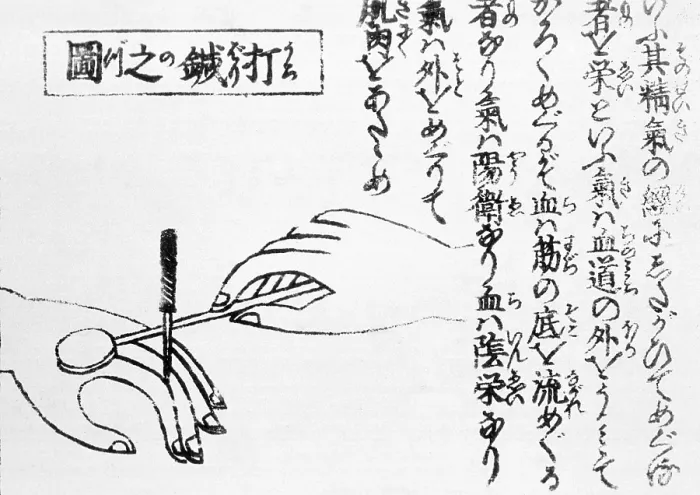 いふ其精氣の經にしたがひてめぐる
者を栄といふ氣ハ血道の外を
かろくめぐるぞ血ハ筋の底を流めぐる
者なり氣ハ陽衛なり血ハ陰栄なり
氣ハ外をめぐりて
肌肉をあたゝめ
打鍼之圖